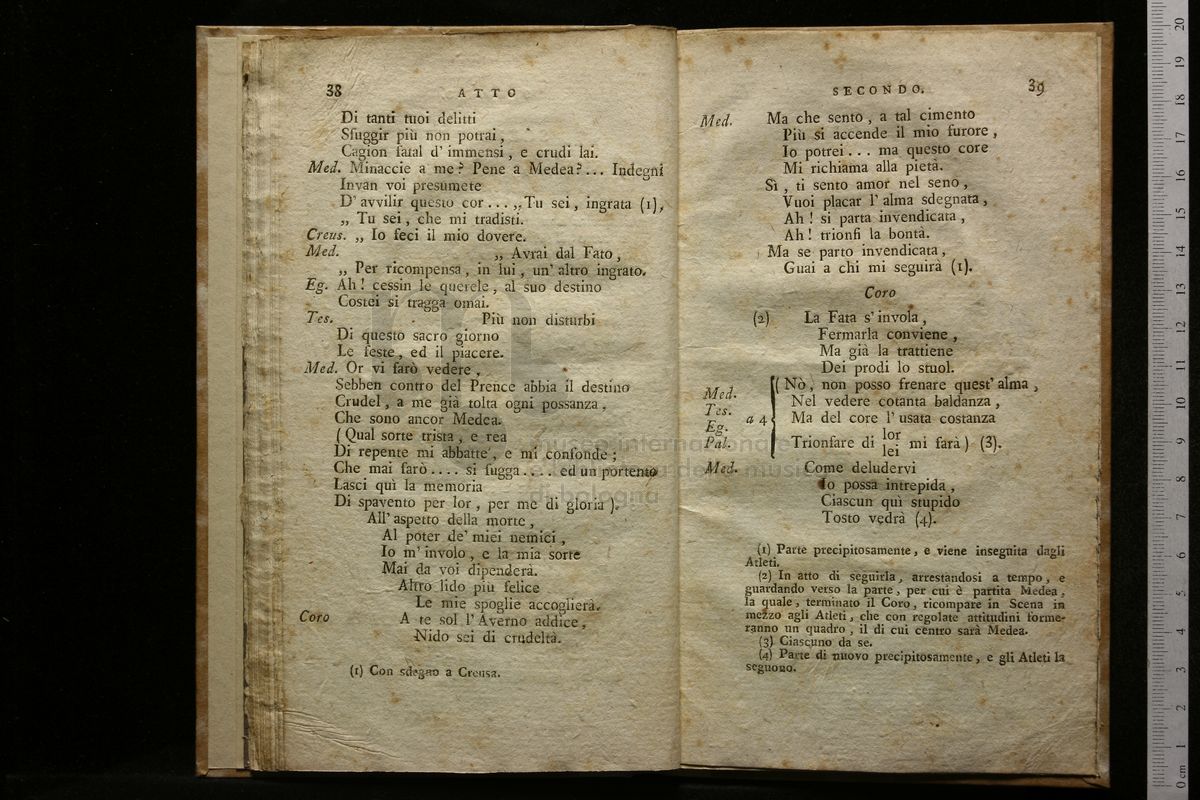 38
ATTO
Di tanti tuoi delitti
Sfuggir più non potrai,
Cagion fatal d' immensi, e crudi lai.
Med. Minaccie a me? Pene a Medea?... Indegni
Invan voi presumete
D' avvilir questo cor... „Tu sei, ingrata (1),
„ Tu sei, che mi tradisti.
Creus. „ Io feci il mio dovere.
Med. „ Avrai dal Fato,
„ Per ricompensa, in lui, un' altro ingrato.
Eg. Ah! cessin le querele, al suo destino
Costei si tragga omai.
Tes. Più non disturbi
Di questo sacro giorno
Le feste, ed il piacere.
Med. Or vi farò vedere,
Sebben contro del Prence abbia il destino
Crudel, a me già tolta ogni possanza,
Che sono ancor Medea.
(Qual sorte trista, e rea
Di repente mi abbatte', e mi confonde;
Che mai farò.... si fugga.... ed un portento
Lasci quì la memoria
Di spavento per lor, per me di gloria).
All' aspetto della morte,
Al poter de' miei nemici,
Io m' involo, e la mia sorte
Mai da voi dipenderà.
Altro lido più felice
Le mie spoglie accoglierà.
Coro A te sol l' Averno addice,
Nido sei di crudeltà.
(1) Con sdegno a Creusa.
SECONDO.
39
Med. Ma che sento, a tal cimento
Più si accende il mio furore,
Io potrei... ma questo core
Mi richiama alla pietà.
Sì, ti sento amor nel seno,
Vuoi placar l' alma sdegnata,
Ah! si parta invendicata,
Ah! trionfi la bontà.
Ma se parto invendicata,
Guai a chi mi seguirà (1).
Coro
(2) La Fata s' invola,
Fermarla conviene,
Ma già la trattiene
Dei prodi lo stuol.
Med.
Tes.
Eg.
Pal.
a 4
(Nò, non posso frenare quest' alma,
Nel vedere cotanta baldanza,
Ma del core l' usata costanza
Trionfare di lor lei mi farà) (3).
Med. Come deludervi
Io possa intrepida,
Ciascun quì stupido
Tosto vedrà (4).
(1) Parte precipitosamente, e viene inseguita dagli
Atleti.
(2) In atto di seguirla, arrestandosi a tempo, e
guardando verso la parte, per cui è partita Medea,
la quale, terminato il Coro, ricompare in Scena in
mezzo agli Atleti, che con regolate attitudini forme-
ranno un quadro, il di cui centro sarà Medea.
(3) Ciascuno da se.
(4) Parte di nuovo precipitosamente, e gli Atleti la
seguono.
museo internazionale
della musica
di bologna
0 cm 1 2 3 4 5 6 7 8 9 10 11 12 13 14 15 16 17 18 19 20